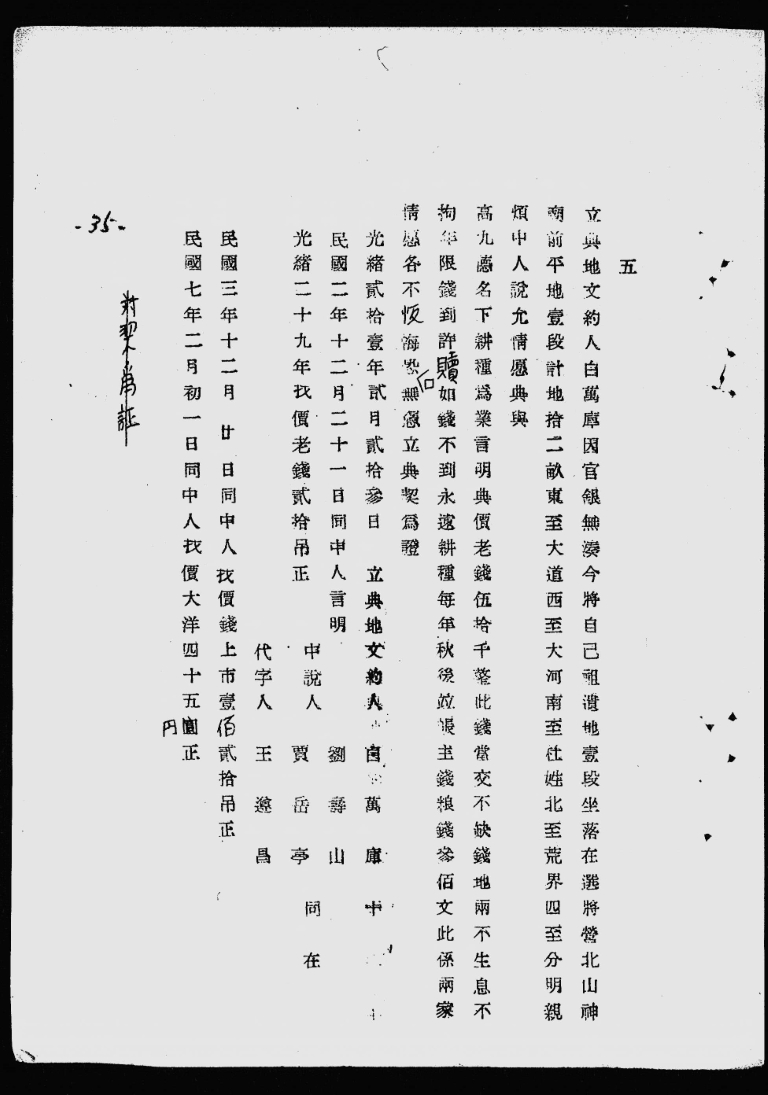 五
立典地文約人白萬庫因官銀無湊今將自己祖遺地壹段坐落在選將營北山神
廟前平地壹段計地拾二畝東至大道西至大河南至杜姓北至荒界四至分明親
煩中人說允情愿典與
高九德名下耕種爲業言明典價老錢伍拾千整此錢當交不缺錢地兩不生息不
拘年限錢到許贖如錢不到永遠耕種每年秋後竝張主錢粮錢參佰文此係兩家
情愿各不恆悔恐后無憑立典契爲證
光緒貳拾壹年貳月貳拾參日 立典地文約人 白萬庫 十
民國二年十二月二十一日同中人言明
光緒二十九年找價老錢貳拾吊正
中說人 劉壽山 賈岳亭 同在
代字人 王遵昌
民國三年十二月廿日同中人找價錢上市壹佰貳拾吊正
民國七年二月初一日同中人找價大洋四十五圓正
円
-35-